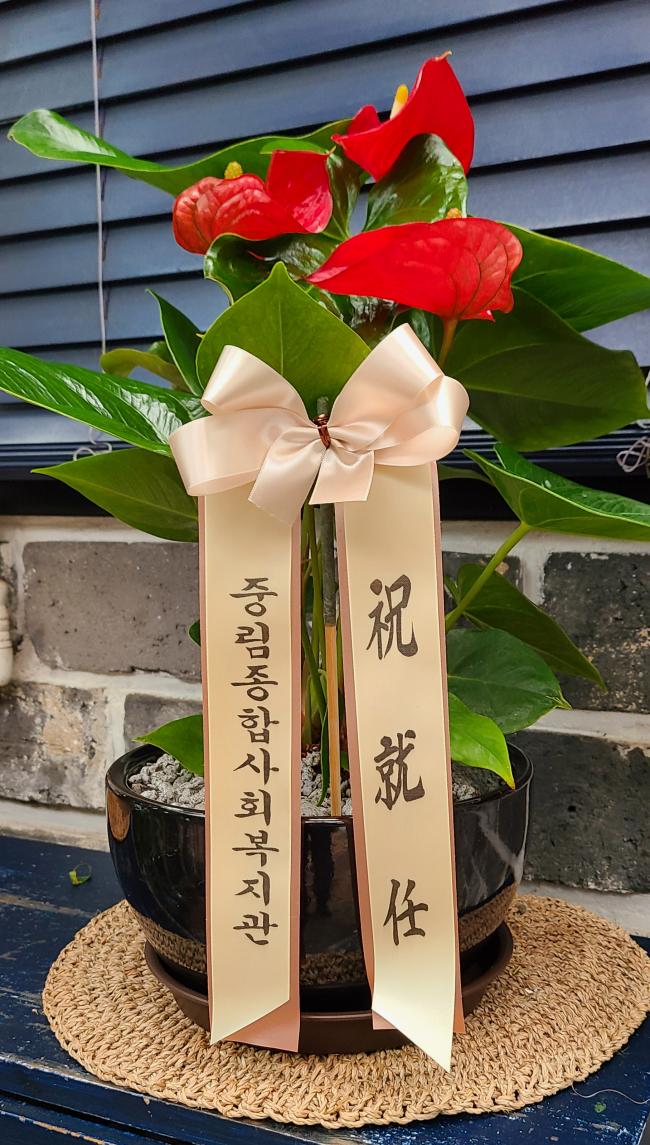 祝就任
중림종합사회복지관